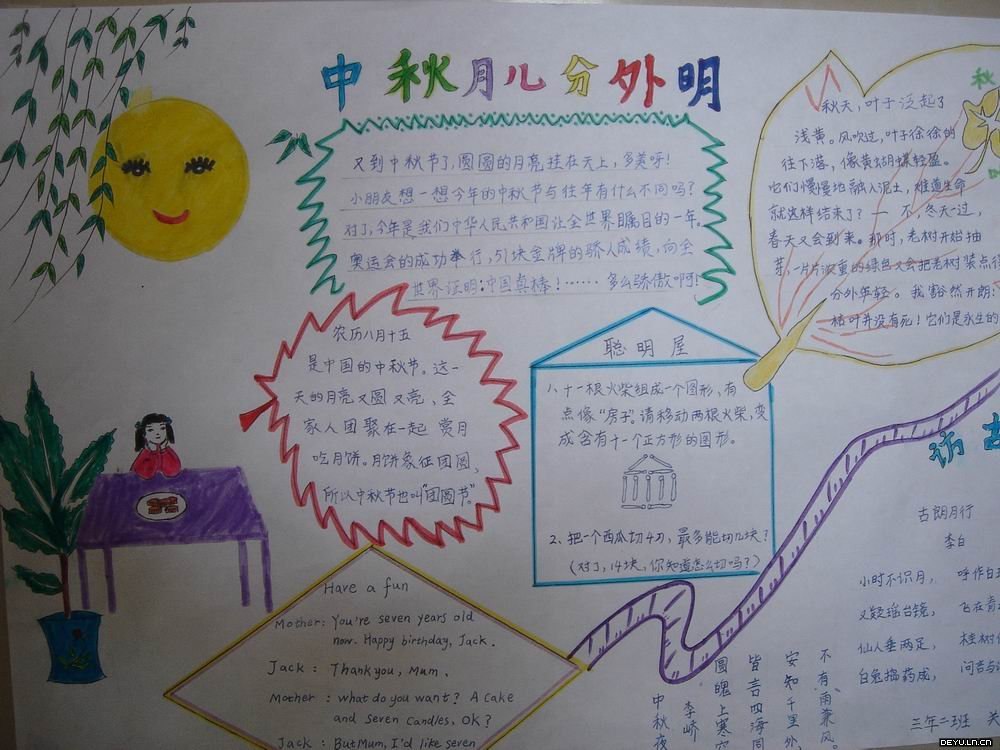 中秋月儿分外明
又到中秋节了,圆圆的月亮挂在天上,多美呀!
小朋友想一想今年的中秋节与往年有什么不同吗?
对了,今年是我们中华人民共和国让全世界瞩目的一年。
奥运会的成功举行,51块金牌的骄人成绩,向全
世界证明:中国真棒!……多么骄傲啊!
秋
秋天,叶子泛起了
浅黄。风吹过,叶子徐徐的
往下落,像黄蝴蝶轻盈。
它们慢慢地融入泥土,难道生命
就这样结束了?一不,冬天一过,
春天又会到来。那时,老树开始抽
芽,一片片浓重的绿色又会把老树装点得
分外年轻。我豁然开朗:
枯叶并没有死!它们是永生的
农历八月十五
是中国的中秋节。这一
天的月亮又圆又亮,全
家人团聚在一起赏月
吃月饼。月饼象征团圆,
所以中秋节也叫"团圆节"。
聪明屋
1、十一根火柴组成一个图形,有
点像"房子"。请移动两根火柴,变
成含有十一个正方形的图形。
2、把一个西瓜切4刀,最多能切几块?
(对了,14块,你知道怎么切吗?)
Have a fun
Mother: You're seven years old
now. Happy birthday, Jack.
Jack: Thank you, Mum.
Mother: what do you want? A cake
and seven candles, OK?
Jack: But Mum, I'd like seven
中秋夜
李峤
圆魄上寒空
皆言四海同
安知千里外
不有雨兼风
访古
古朗月行
李白
小时不识月, 呼作白玉
又疑瑶台镜, 飞在青
仙人垂两足, 桂树
白兔捣药成, 问言与
三年二班 关
DEYU.LN.CN